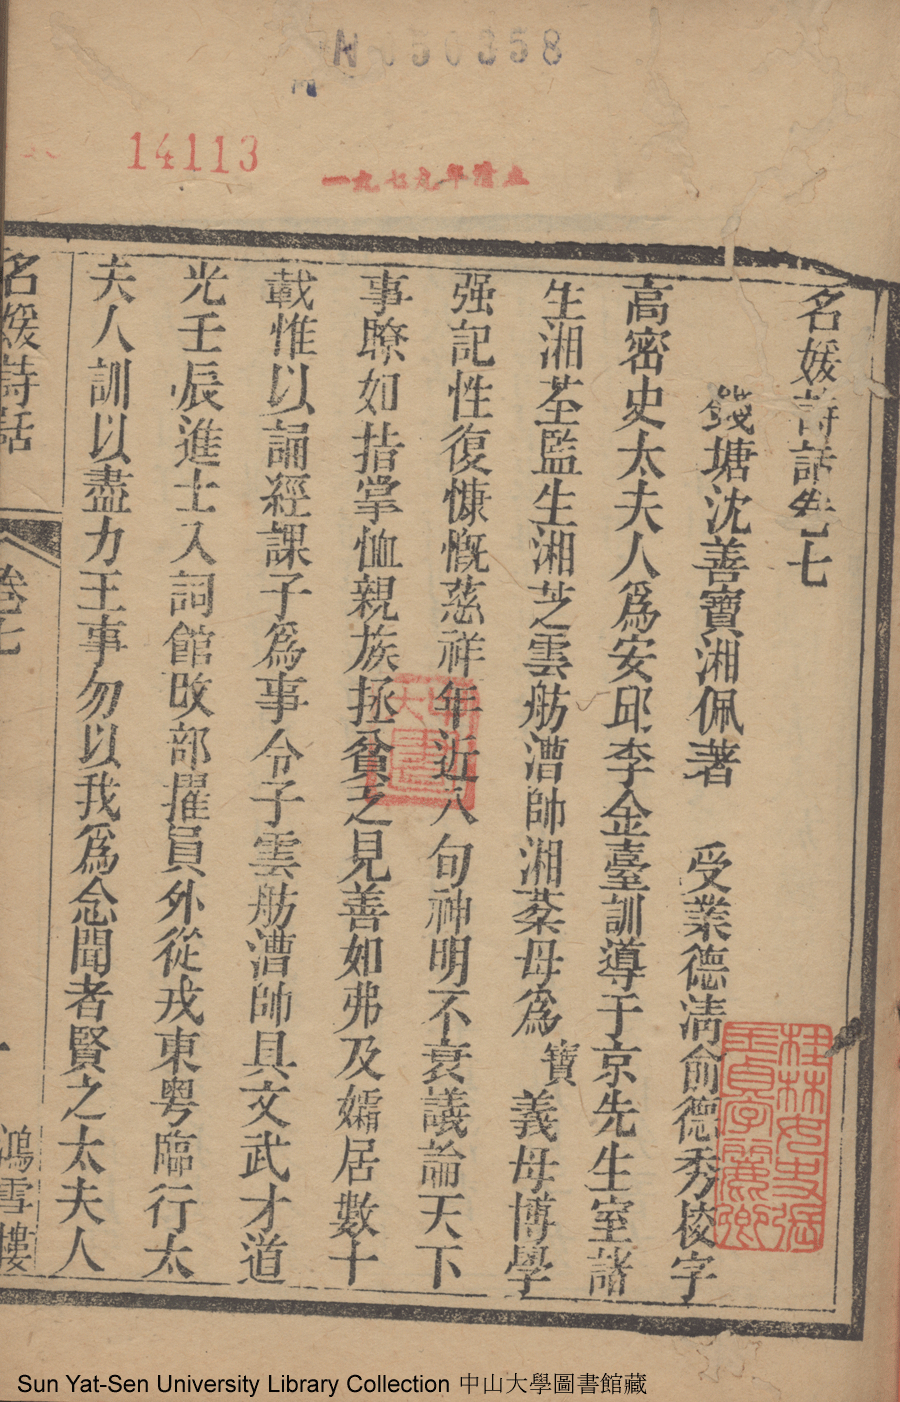 N 050358
14113
一九七九年清点
名媛詩話卷七
錢塘沈善寶湘佩著　受業德清俞德秀校字
高密史太夫人爲安邱李金臺訓導于京先生室諸
生湘荃監生湘芝雲舫漕帥湘棻母爲寶義母博學
强記性復慷慨慈祥年近八旬神明不衰議論天下
事瞭如指掌恤親族拯貧乏見善如弗及孀居數十
載惟以誦經課子爲事令子雲舫漕帥具文武才道
光壬辰進士入詞館改部擢員外從戎東粵臨行太
夫人訓以盡力王事勿以我爲念聞者賢之太夫人
名媛詩話
卷七
一
鴻雪樓
Sun Yat-Sen University Library Collection 中山大學圖書館藏